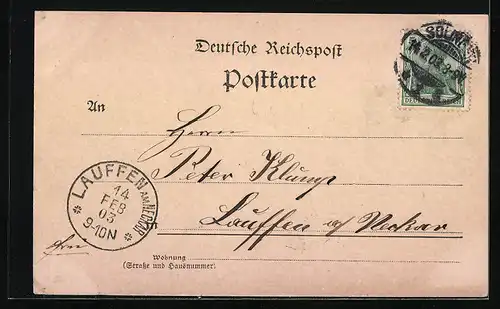 Deutsche Reichspost
Postkarte
An
Herrn
Peter Klump
Lauffen a/ Neckar
in
Wohnung
(Straße und Hausnummer)
LAUFFEN AM NECKAR
14
FEB
03
9-10N